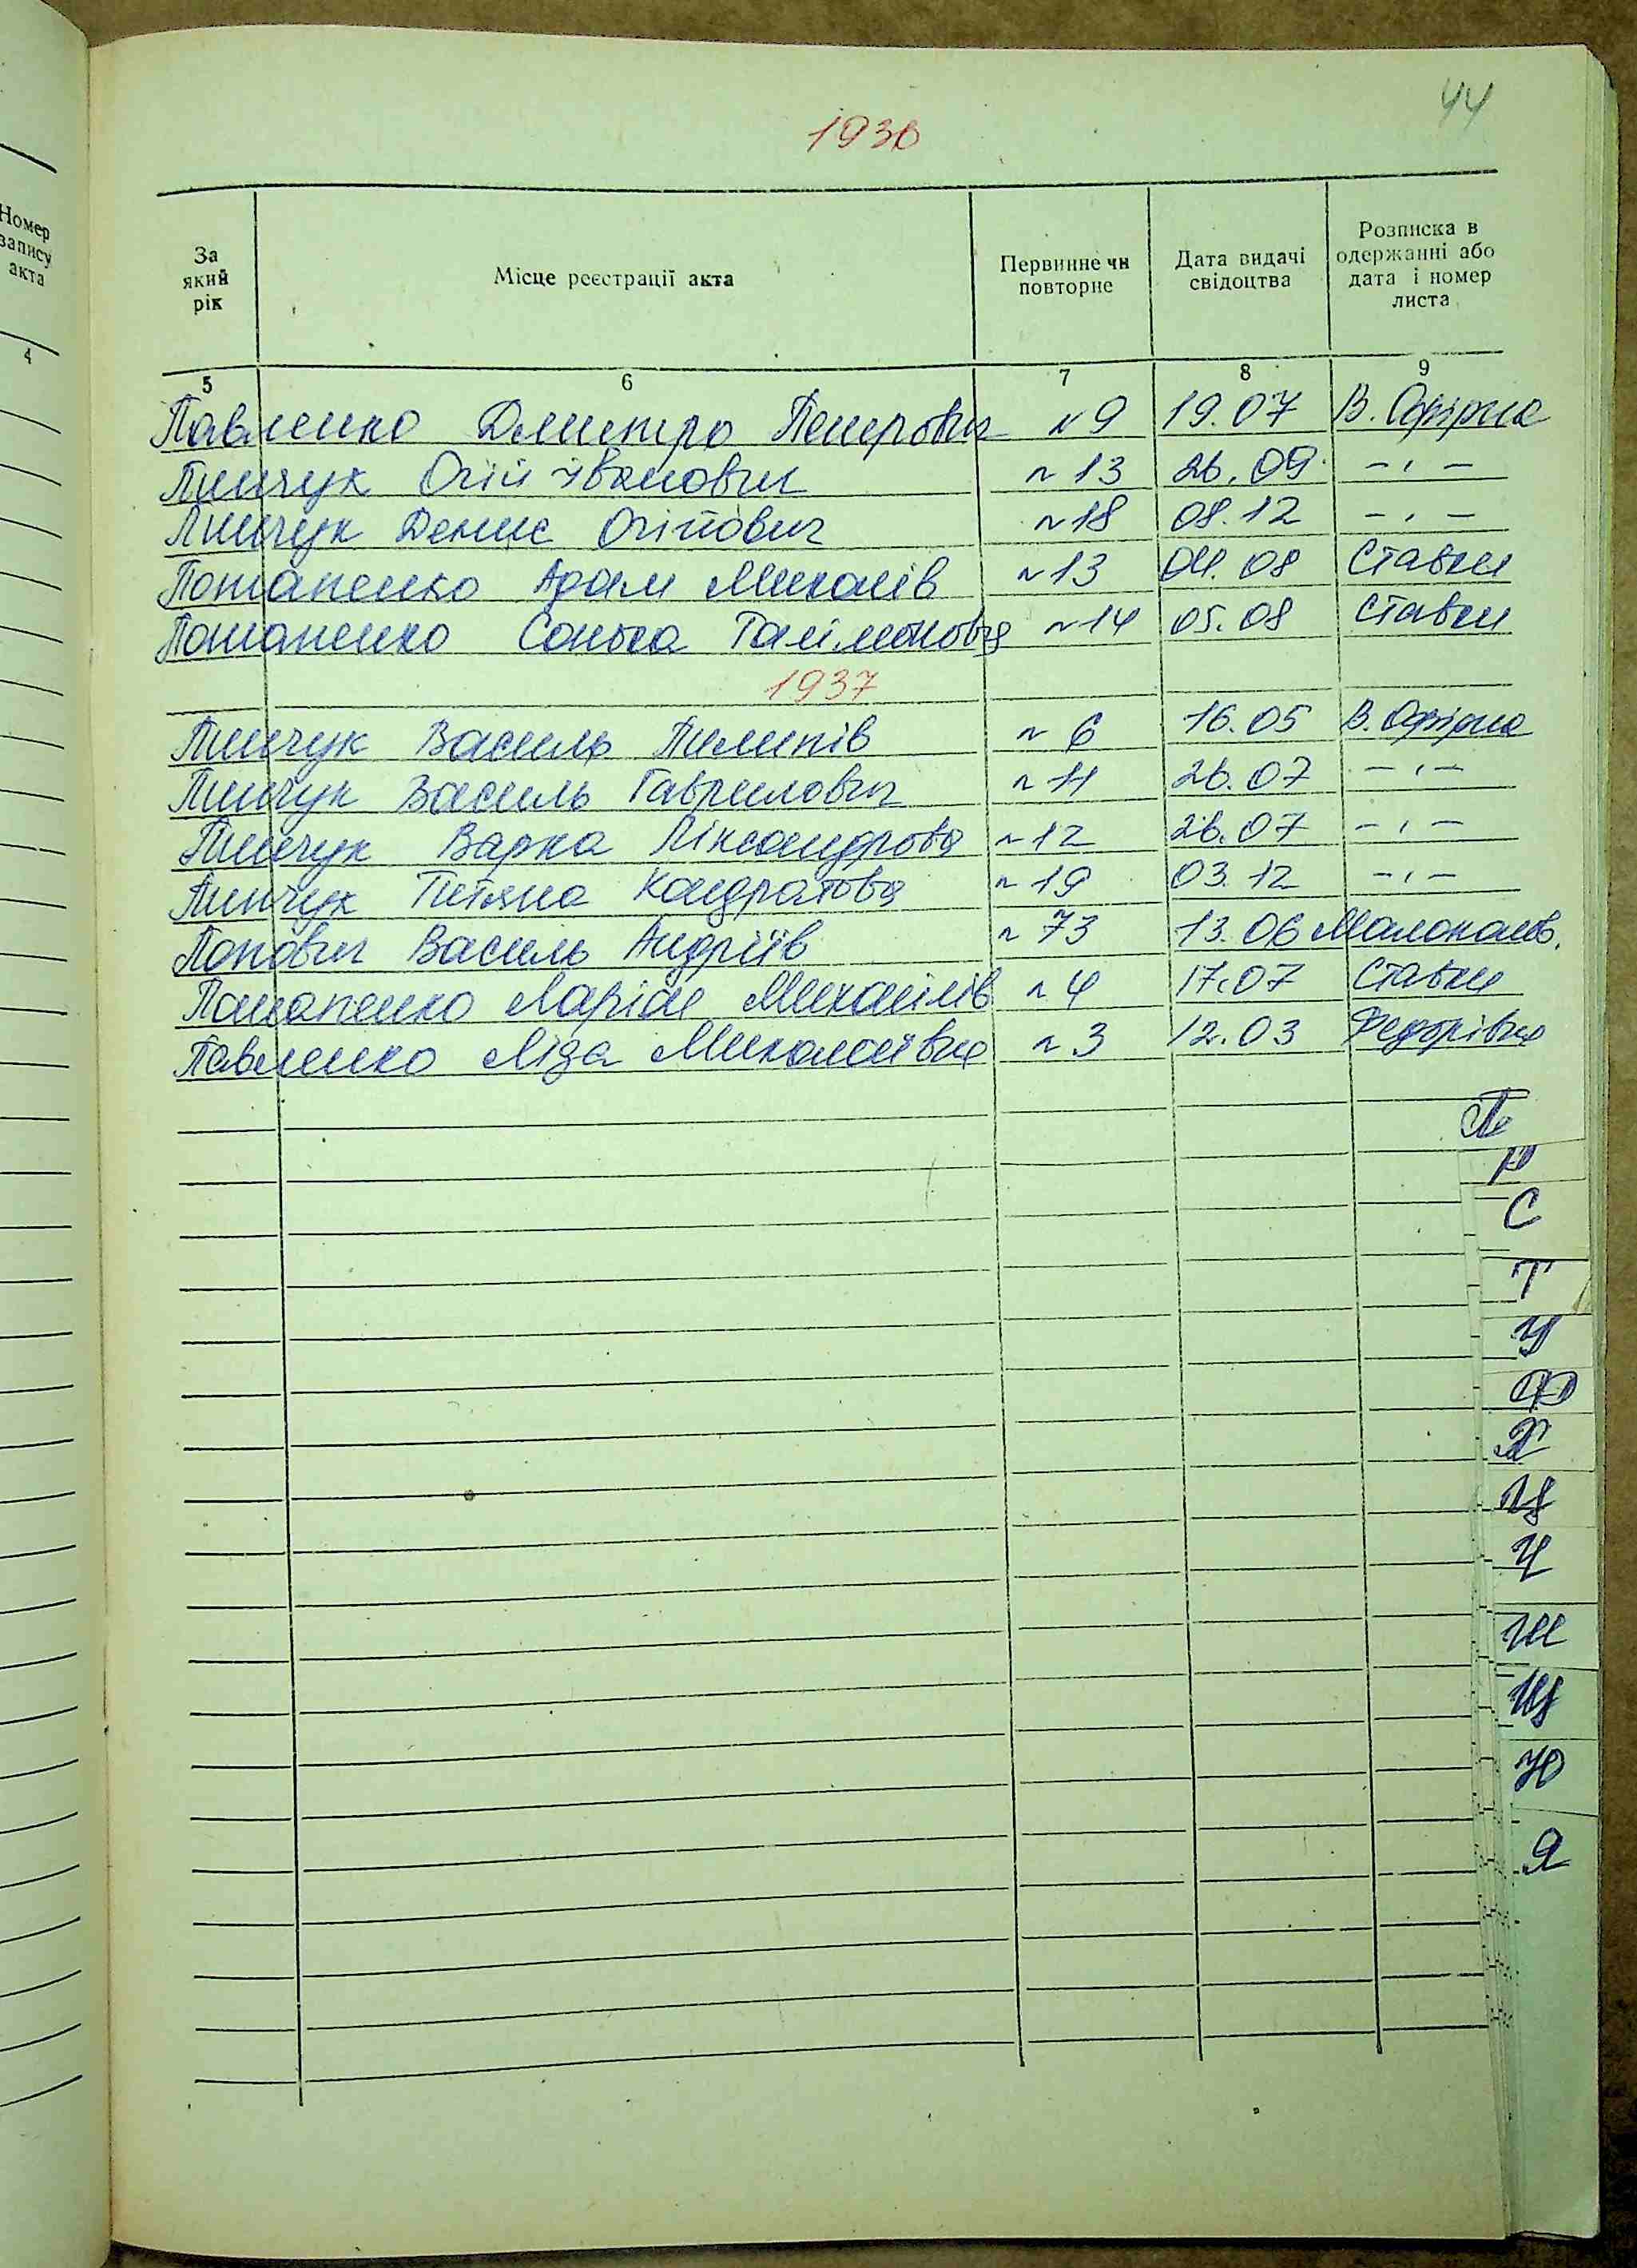 44
1936
Номер запису акта
За який рік
Місце реєстрації акта
Первинне чи повторне
Дата видачі свідоцтва
Розписка в одержанні або дата і номер листа
4
5 6 7 8 9
Павленко Дмитро Петрович №9 19.07 В. Офірна
Пинчук Огій Іванович №13 26.09. -"-
Пинчук Денис Огійович №18 08.12 -"-
Потапенко Адам Миколів №13 04.08 Ставки
Потапенко Сонька №14 05.08 Ставки
1937
Пинчук Василь Пилипів №6 16.05 В. Офірна
Пинчук Василь Гаврилович №11 26.07 -"-
Пинчук Варка Ліксандрова №12 26.07 -"-
Пинчук Тетяна Кондратова №19 03.12 -"-
Попович Василь Андріїв №73 13.06
Потапенко Михайлів №4 17.07 Ставки
Павленко Ліза Миколаївна №3 12.03 Федорівка
П
Р
С
Т
У
Ф
Х
Ц
Ч
Ш
Щ
Ю
Я